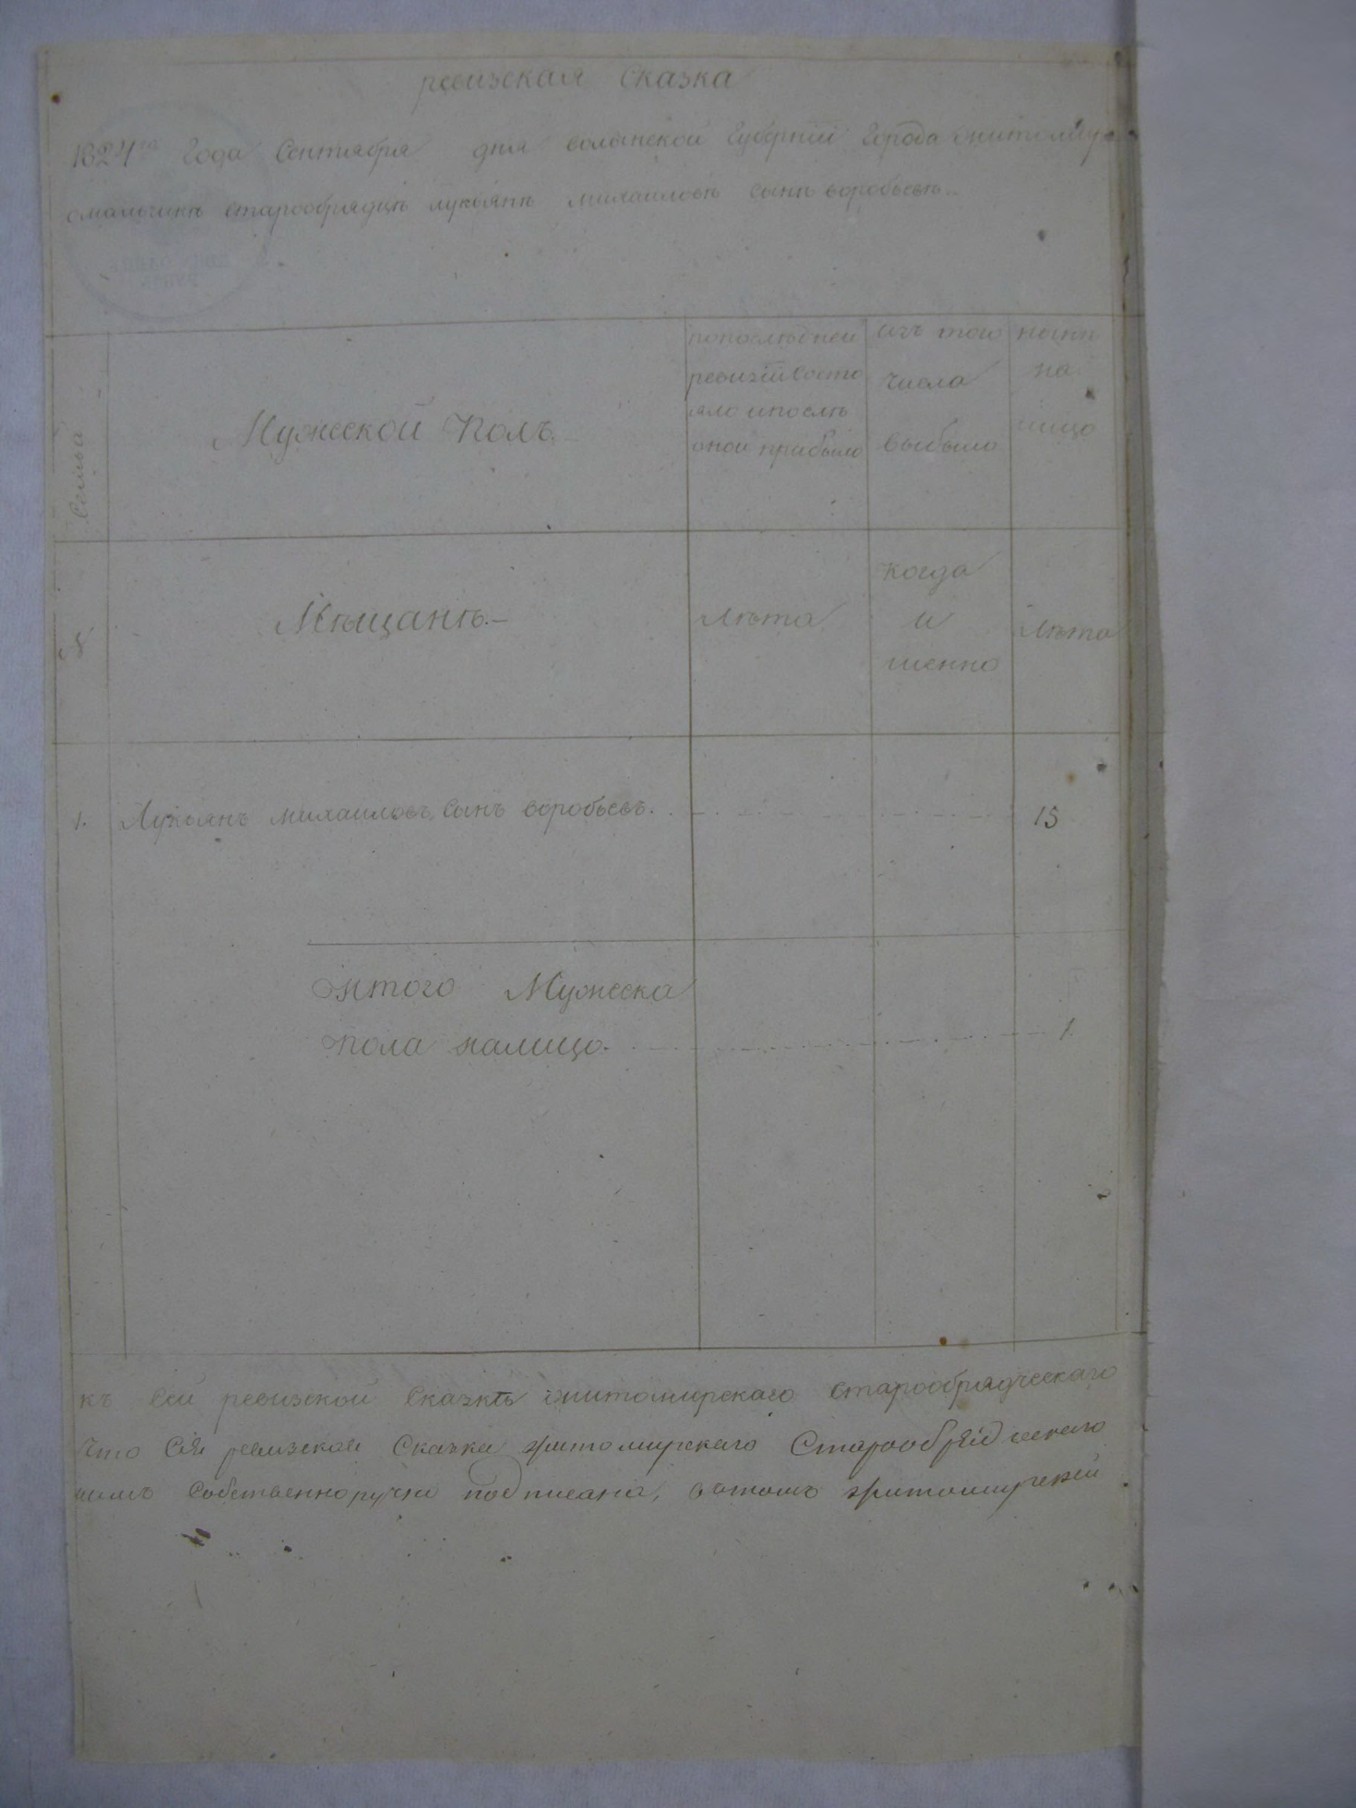 ревизская сказка
1824го Года Сентября дня волынской Губерніи Города житомира
омальчикѣ старообрядцѣ лукьянѣ михаиловѣ сынѣ воробьевѣ
Семьи
Мужеской Полъ.
попоследнеи
ревизіи состо
яло ипослѣ
оной прибыло
изъ того
числа
выбыло
нынѣ
на
лицо
№
Мѣщанъ.
лѣта
когда
и
именно
лѣта
1. Лукьянъ михаиловъ сынъ воробьевъ. 15
итого Мужеска
пола налицо. 1.
къ сеи ревизской Сказкѣ житомирскаго старообрядческаго
Что Сія ревизская Сказка житомирскаго Старообрядческаго
нимъ собственноручно подписана, вотомъ житомирской